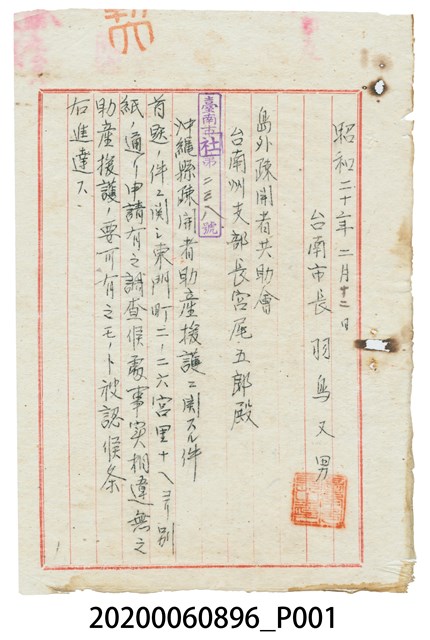 昭和二十年二月十二日
台南市長 羽鳥又男
島外疎開者共助會
台南州支部長宮尾五郎殿
臺南市社第二三八號
沖繩縣疎開者助産援護ニ関スル件
首題ノ件ニ関シ東門町二ノ二六宮里ヨリ別
紙ノ通リ申請有之調査候處事実相違無之
助産援護ノ要可有之モノト被認候条
右進達ス
20200060896_P001